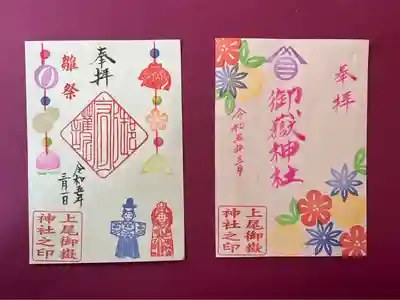 奉拝
雛祭
令和五年
三月一日
上尾御嶽
神社之印
奉拝
御嶽神社
令和五年三月
上尾御嶽
神社之印